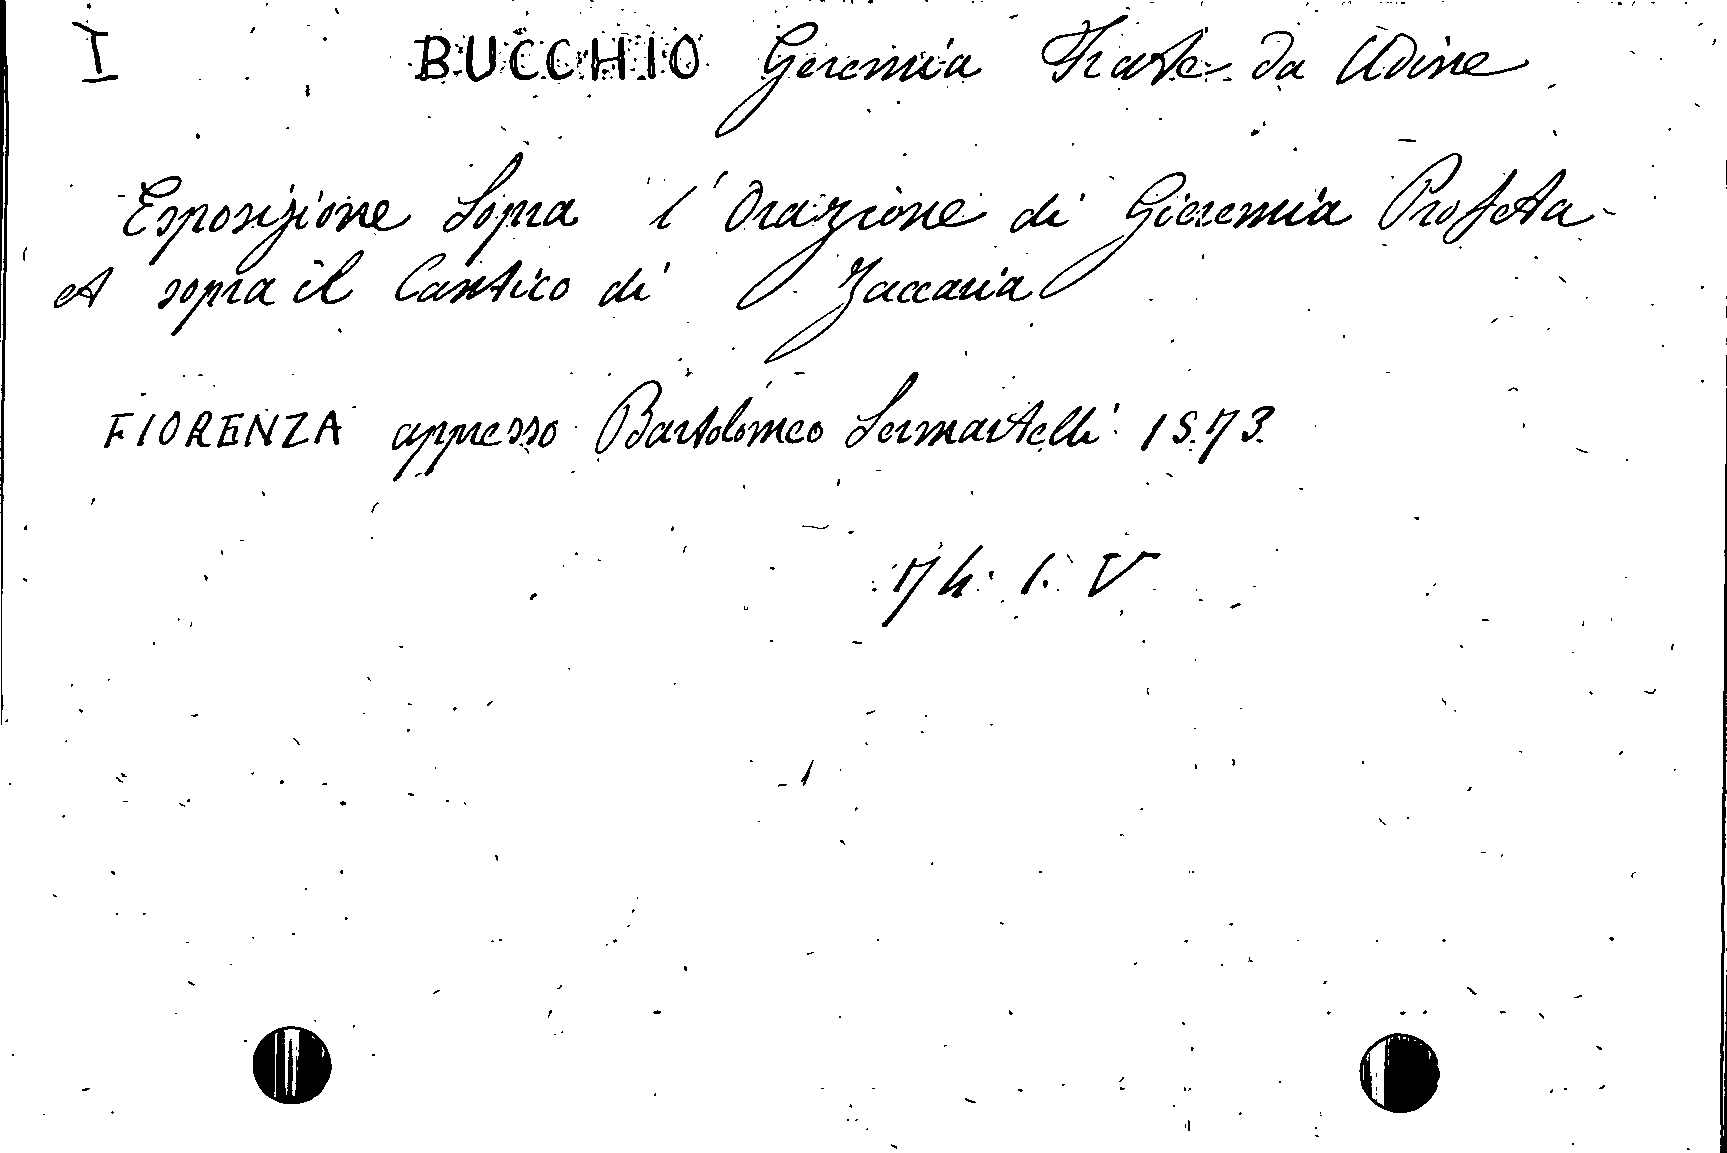 I BUCCHIO Geremia Frate da Udine
Esposizione Sopra l'Orazione di Gieremia Profeta
et sopra il Cantico di Zaccaria
FIORENZA appresso Bartolomeo Sermartelli 1573.
74. 1. V